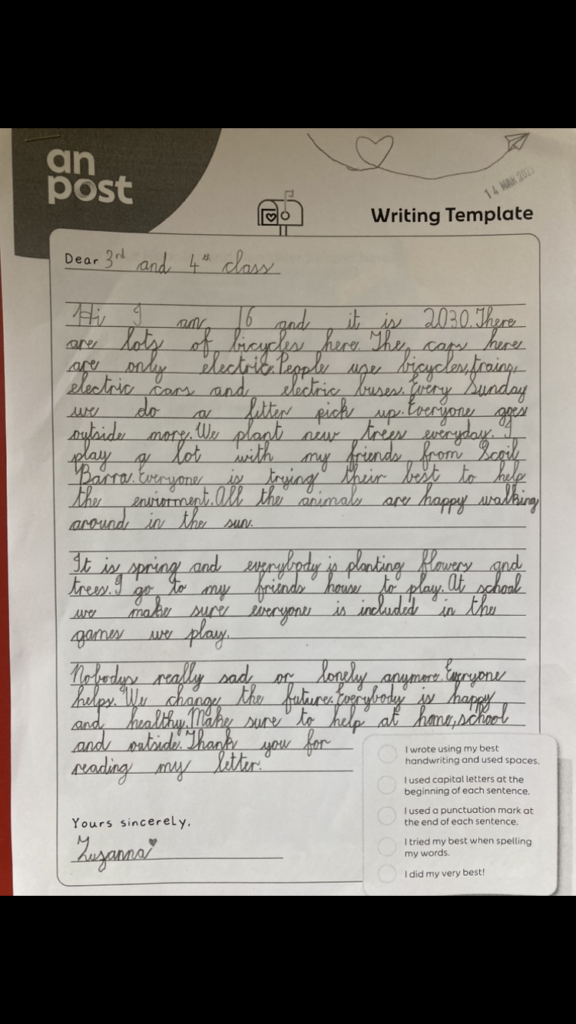 an
post
14 MAR 202
Writing Template
Dear 3rd and 4th class
Hi I am 16 and it is 2030. There
are lots of bicycles here. The cars here
are only electric. People use bicycles, trains,
electric cars and electric buses. Every Sunday
we do a litter pick up. Everyone goes
outside more. We plant new trees everyday. I
play a lot with my friends from Scoil
Barra. Everyone is trying their best to help
the enviorment. All the animals are happy walking
around in the sun.
It is spring and everybody is planting flowers and
trees. I go to my friends house to play. At school
we make sure everyone is included in the
games we play.
Nobodys really sad or lonely anymore. Everyone
helps. We change the future. Everybody is happy
and healthy. Make sure to help at home, school
and outside. Thank you for
reading my letter.
Yours sincerely,
Zuzanna
I wrote using my best
handwriting and used spaces.
I used capital letters at the
beginning of each sentence.
I used a punctuation mark at
the end of each sentence.
I tried my best when spelling
my words.
I did my very best!